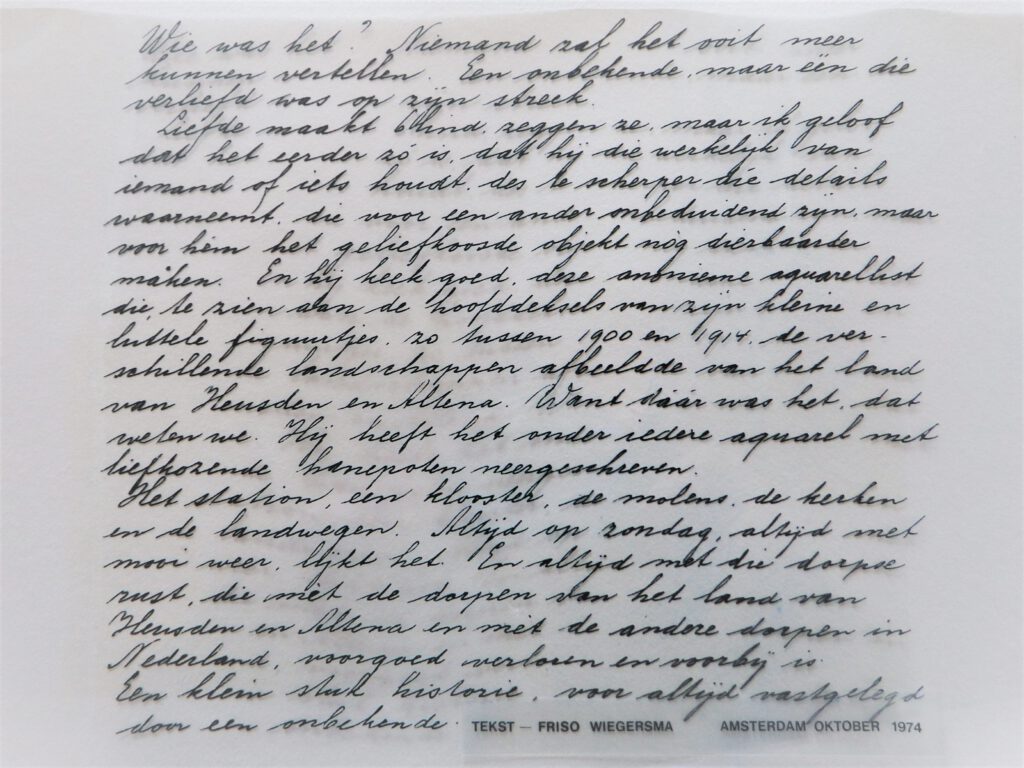 Wie was het? Niemand zal het ooit meer
kunnen vertellen. Een onbekende, maar één die
verliefd was op zijn streek.
Liefde maakt blind, zeggen ze, maar ik geloof
dat het eerder zó is, dat hij die werkelijk van
iemand of iets houdt, des te scherper die details
waarneemt, die voor een ander onbeduidend zijn, maar
voor hém het geliefkoosde objekt nóg dierbaarder
máken. En hij keek goed, deze anonieme aquarellist
die, te zien aan de hoofddeksels van zijn kleine en
luttele figuurtjes, zo tussen 1900 en 1914, de ver-
schillende landschappen afbeeldde van het land
van Heusden en Altena. Want dáár was het, dat
weten we. Hij heeft het onder iedere aquarel met
liefkozende hanepoten neergeschreven.
Het station, een klooster, de molens, de kerken
en de landwegen. Altijd op zondag, altijd met
mooi weer, lijkt het. En altijd met die dorpse
rust, die mét de dorpen van het land van
Heusden en Altena en mét de andere dorpen in
Nederland, voorgoed verloren en voorbij is.
Een klein stuk historie, voor altijd vastgelegd
door een onbekende. TEKST – FRISO WIEGERSMA AMSTERDAM OKTOBER 1974